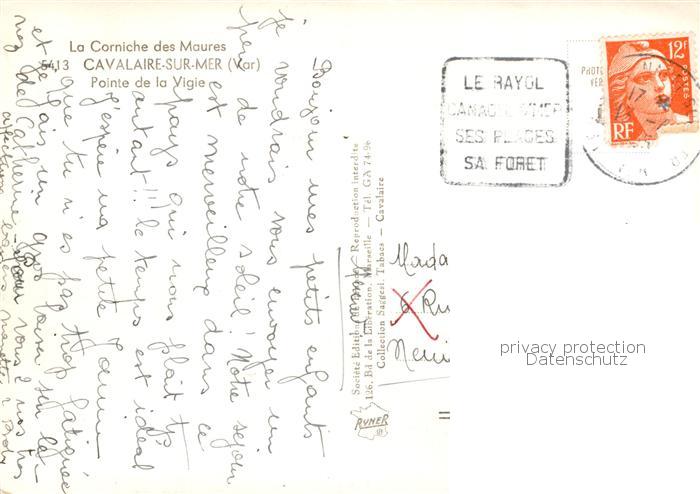 La Corniche des Maures
5413 CAVALAIRE-SUR-MER (Var)
Pointe de la Vigie
Bonjour mes petits enfants
je voudrais vous envoyer un
peu de notre soleil! Notre séjour
est merveilleux dans ce
pays qui nous plait tt
autant!!! le temps est idéal
j'espère ma petite
que tu n'es pas trop fatiguée
et fais un gros baiser sur le
nez de Catherine
pour vous 2 nos très
affectueux baisers
Société Edition de Reproduction interdite
126, Bd de la Libération, Marseille — Tél. GA 74-96
Collection Saggesi, Tabacs — Cavalaire
RYNER
LE RAYOL
CANADEL S/MER
SES PLAGES
SA FORET
PHOTO
VER
12F
POSTES
RF
17
VAR
Mada
6 Ru
privacy protection
Datenschutz